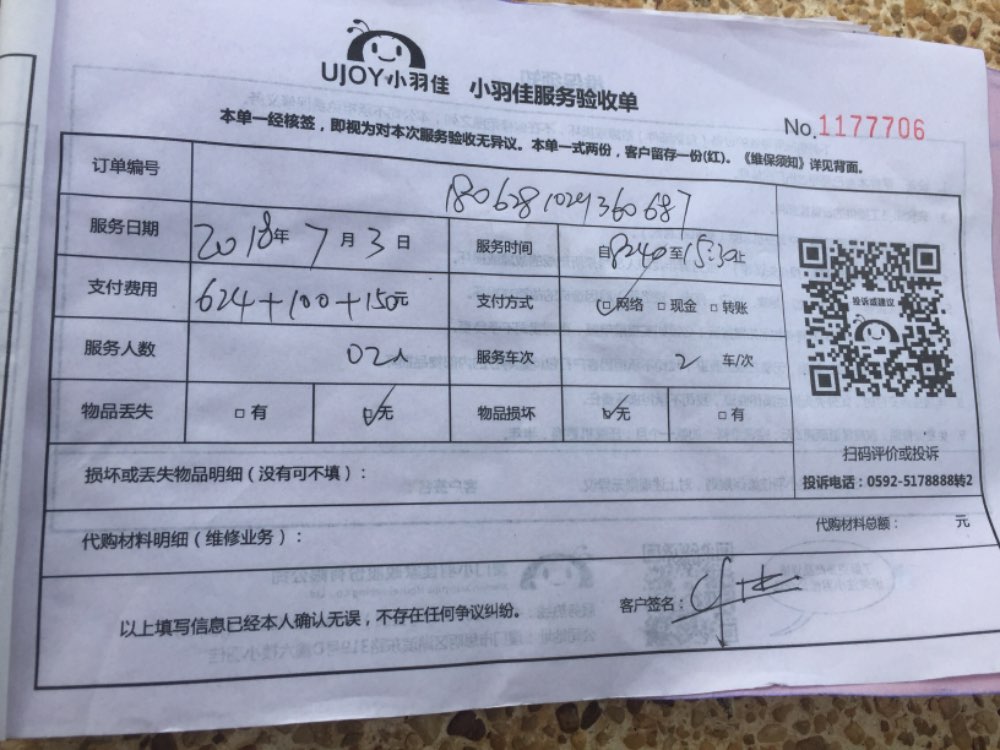 UJOY小羽佳 小羽佳服务验收单
No.1177706
本单一经核签，即视为对本次服务验收无异议。本单一式两份，客户留存一份(红)。《维保须知》详见背面。
订单编号 1806281029360687
服务日期 2018年7月3日 服务时间 自8:40至15:30止
支付费用 624+100+150元 支付方式 网络 现金 转账
服务人数 02人 服务车次 2 车/次
物品丢失 有 无 物品损坏 无 有
投诉或建议
扫码评价或投诉
投诉电话：0592-5178888转2
损坏或丢失物品明细（没有可不填）：
代购材料明细（维修业务）： 代购材料总额： 元
以上填写信息已经本人确认无误，不存在任何争议纠纷。 客户签名：